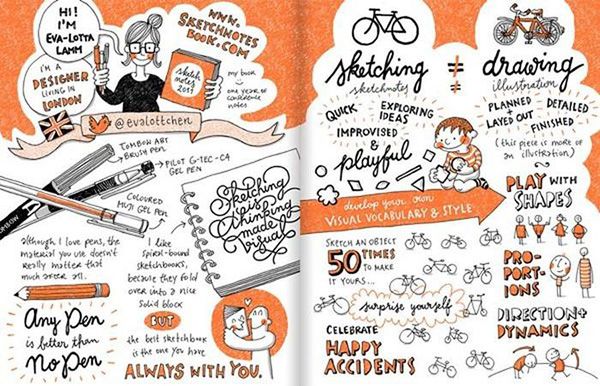 HI!
I'M
EVA-LOTTA
LAMM
WWW.
SKETCHNOTES
BOOK.COM
I'M A
DESIGNER
LIVING IN
LONDON
sketch
notes
2011
my book
one year of
conference
notes
@evalottchen
TOMBOW ABT
BRUSH PEN
PILOT G-TEC-C4
GEL PEN
COLOURED
MUJI GEL PEN
TOMBOW
Sketching
is
Thinking
made
Visual
although I love pens, the
material you use doesn't
really matter that
much after all.
I like
spiral-bound
sketchbooks,
because they fold
over into a nice
solid block
Any Pen
is better than
No Pen
BUT
the best sketchbook
is the one you have
ALWAYS WITH YOU.
sketching
sketchnotes
≠
drawing
illustration
QUICK
EXPLORING
IDEAS
IMPROVISED
&
playful
PLANNED
LAYED OUT
DETAILED
FINISHED
(this piece is more of
an illustration)
develop your own
VISUAL VOCABULARY & STYLE
PLAY WITH
SHAPES
SKETCH AN OBJECT
50 TIMES
TO MAKE
IT YOURS...
PRO-
PORT-
IONS
surprise yourself
CELEBRATE
HAPPY
ACCIDENTS
DIRECTION+
DYNAMICS